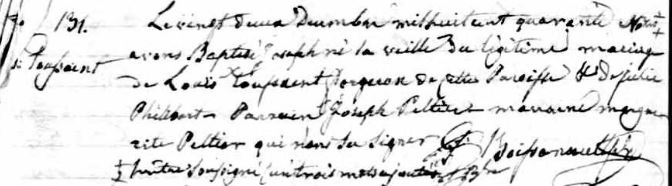 B. 131. Le vingt deux Decembre mil huit cent quarante Nous +
Toussaint avons Baptisé Joseph né la veille du légitime mariage
de Louis Toussaint forgeron de cette Paroisse & de Julie
Philibert Parrain Joseph Peltier marraine Margue
rite Peltier qui n'ont su signer Boissonnault Ptre
+ prêtre soussigné trois mots ajoutés